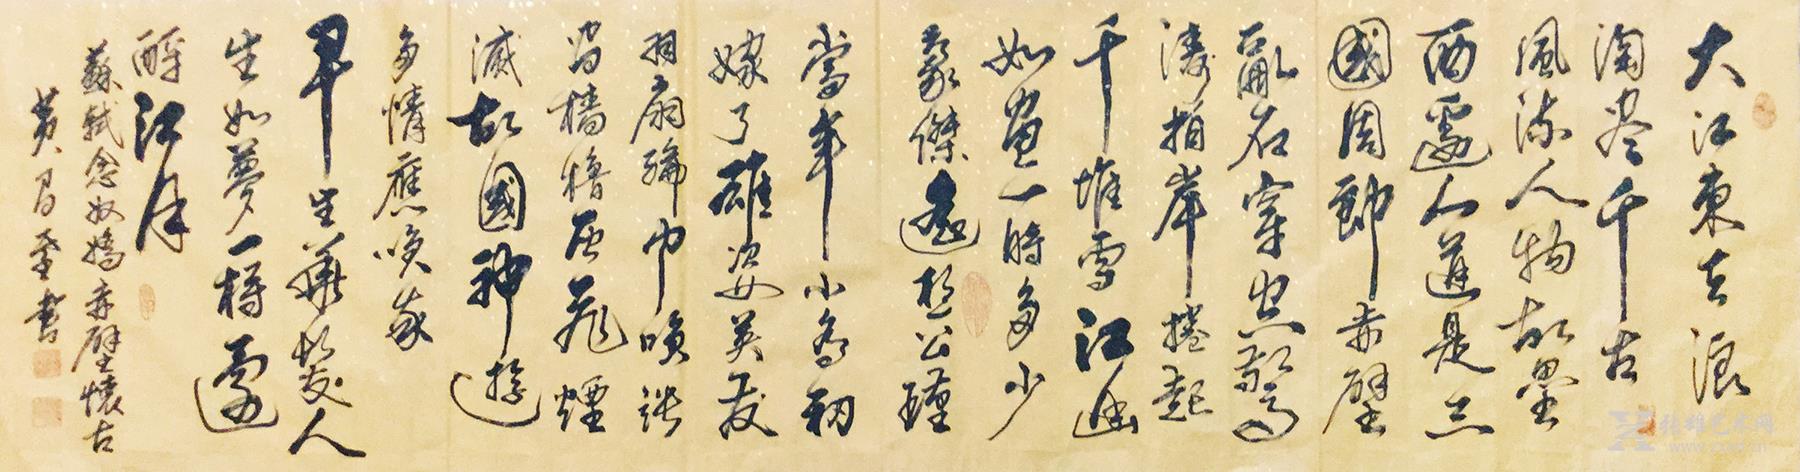 大江東去浪
淘尽千古
風流人物故壘
西邊人道是三
國周郎赤壁
亂石穿空驚
濤拍岸捲起
千堆雪江山
如畫一時多少
豪傑遙想公瑾
當年小喬初
嫁了雄姿英發
羽扇綸巾咲談
間檣櫓灰飛煙
滅故國神遊
多情應咲我
早生華髮人
生如夢一樽還
酹江月
蘇軾念奴嬌赤壁懷古
黄 書
雄艺术网